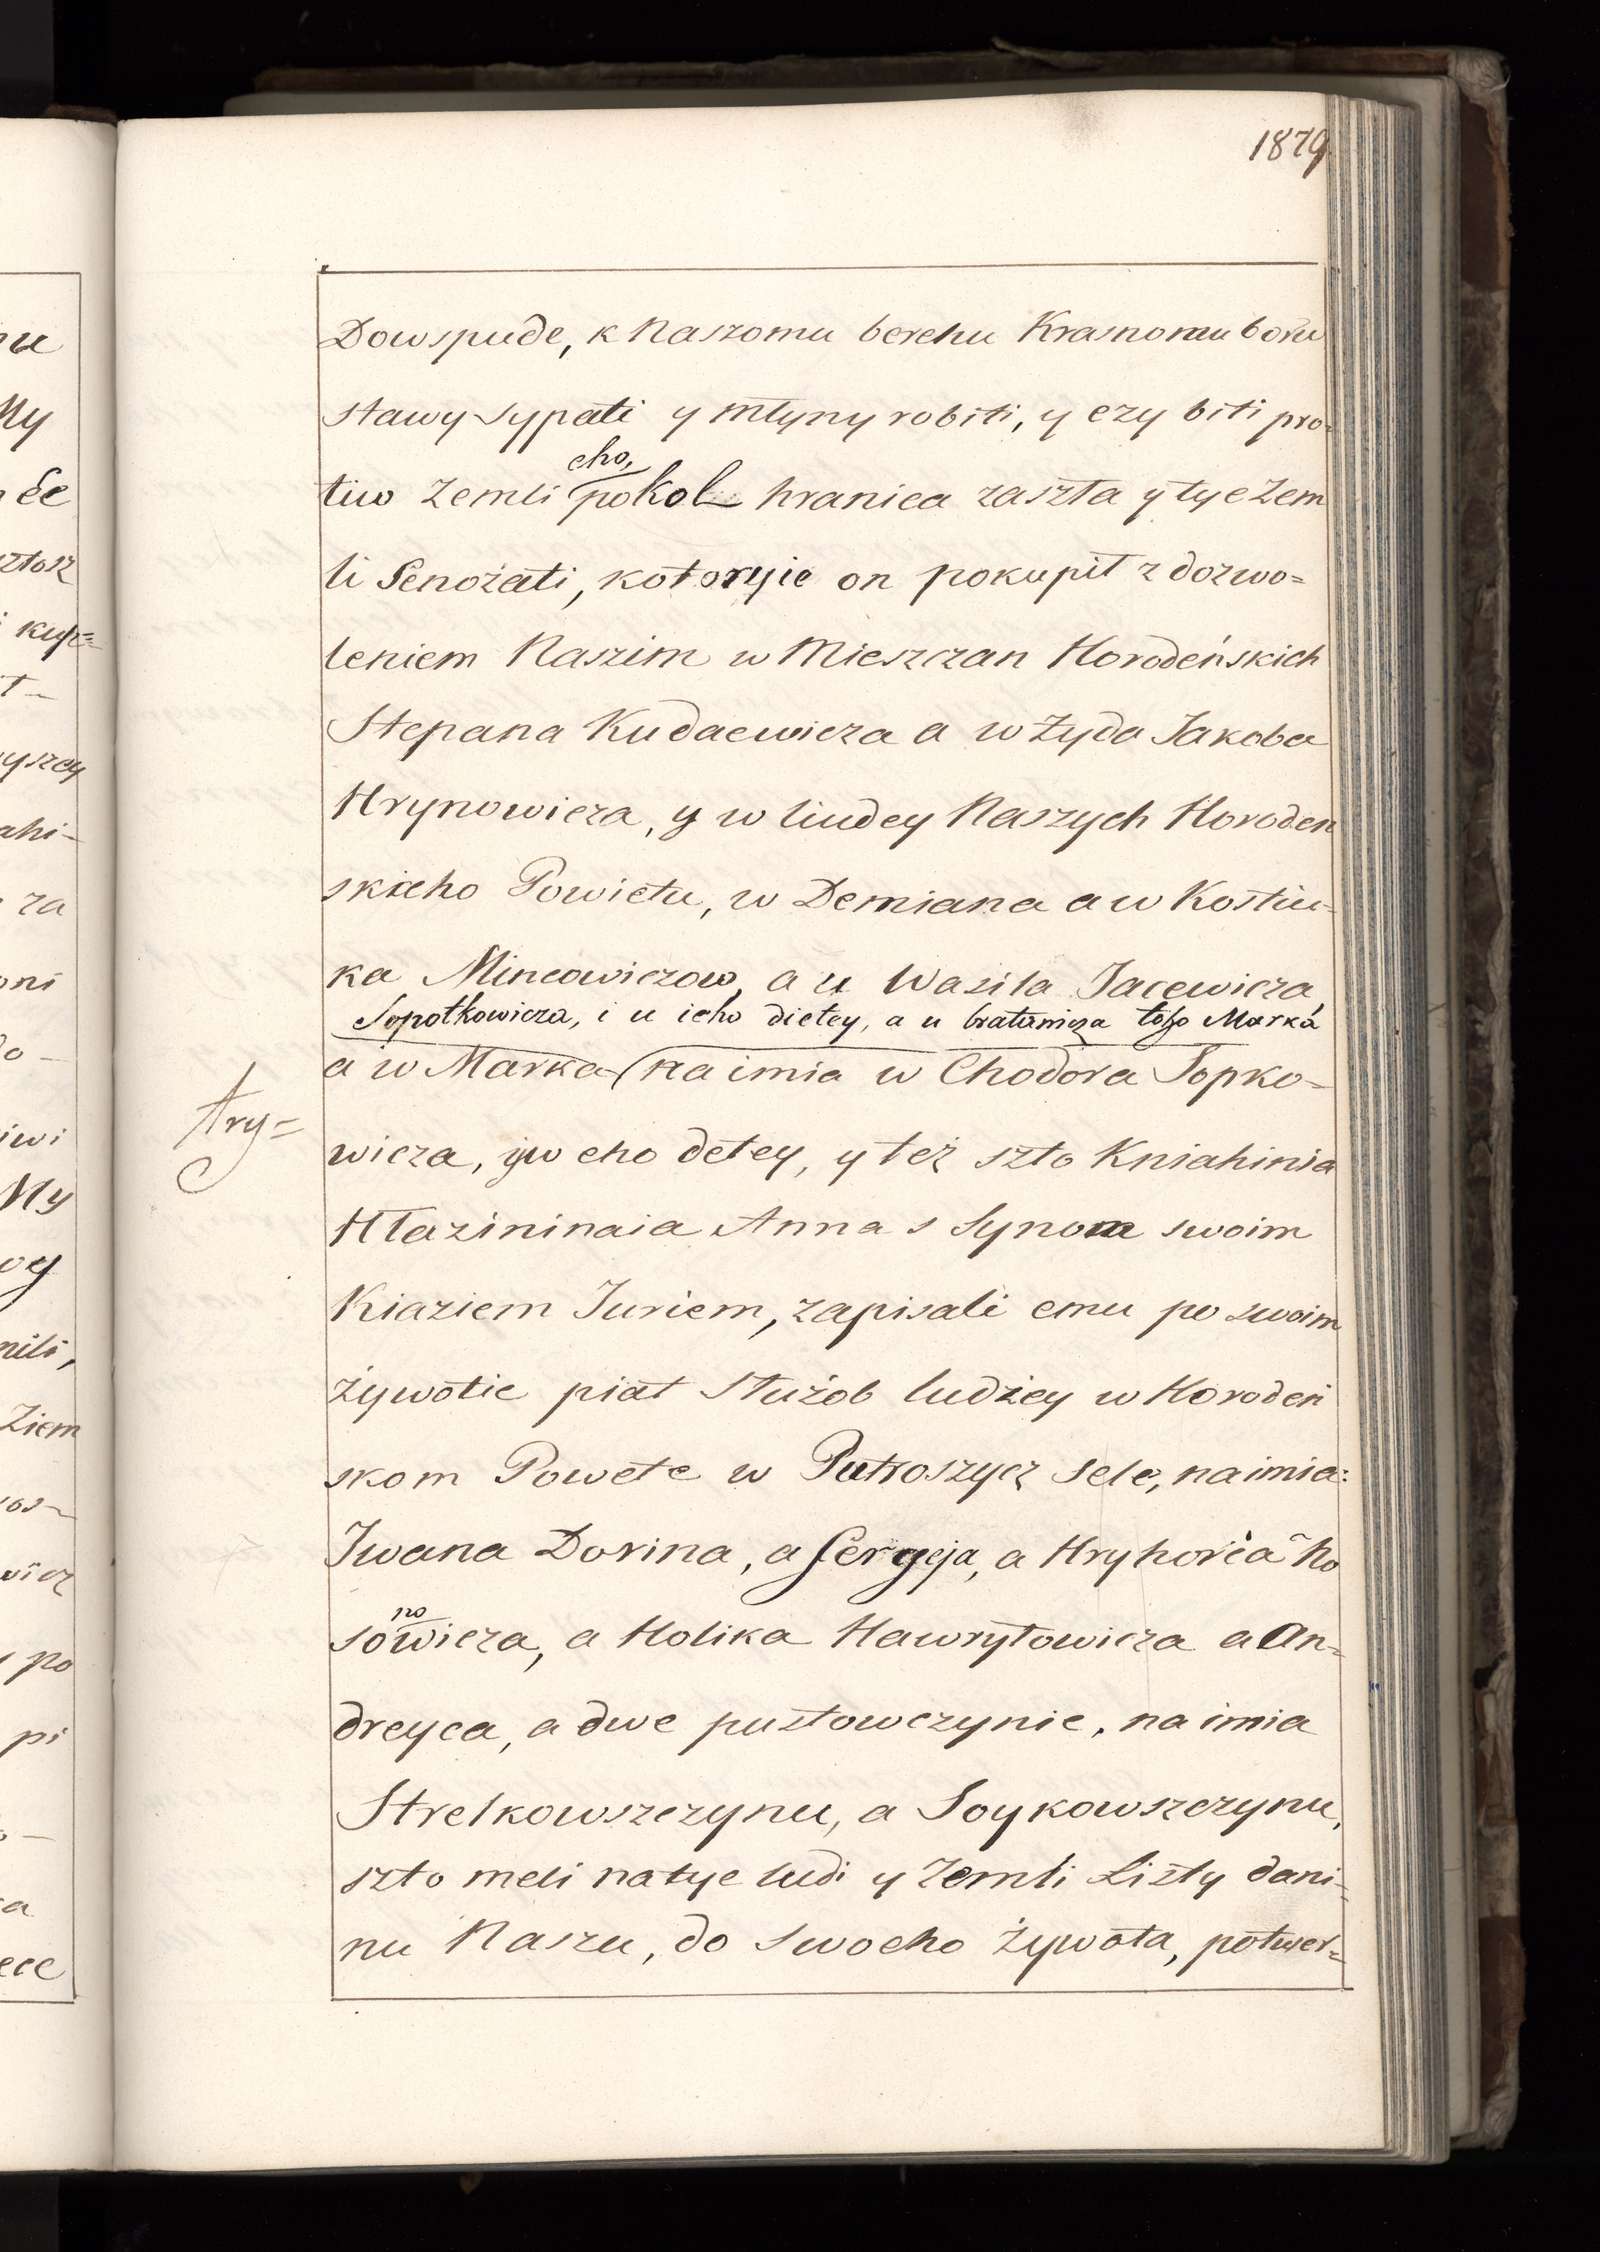 1879
Dowspude, k Naszomu berehu Krasnomu boru
stawy sypati y młyny robiti, y ezy biti pro-
eho,
tiw Zemli pokol hranica zaszła y tye Zem
li Senożati, kotoryie on pokupił z dozwo=
leniem Naszim w Mieszczan Horodeńskich
Stepana Kudaewicza a w Żyda Jakoba
Hrynowicza, y w liudey Naszych Horoden
skieho Powietu, w Demiana a w Kostiu=
ka Mincowiczow, a u Wasila Jacewicza,
Sopotkowicza, i u ieho dietey, a u bratanicza toho Marka
a w Marka na imia w Chodora Sopko=
Ary=
wicza, y w eho detey, y też szto Kniahinia
Hłazininaia Anna s Synom swoim
Kiaziem Juriem, zapisali emu po swoim
żywotie piat Służob ludźey w Horodeń
skom Powete w Putroszycz Sele, na imia:
Iwana Dorina, a Sergeja, a Hryhoria Ko
no
sowicza, a Holika Hawryłowicza a An=
dreyca, a dwe pustowczynie, na imia
Strelkowszczynu, a Soykowszczynu,
szto meli na tye ludi y Zemli Listy dani=
nu Naszu, do Swoeho Żywota, potwer=